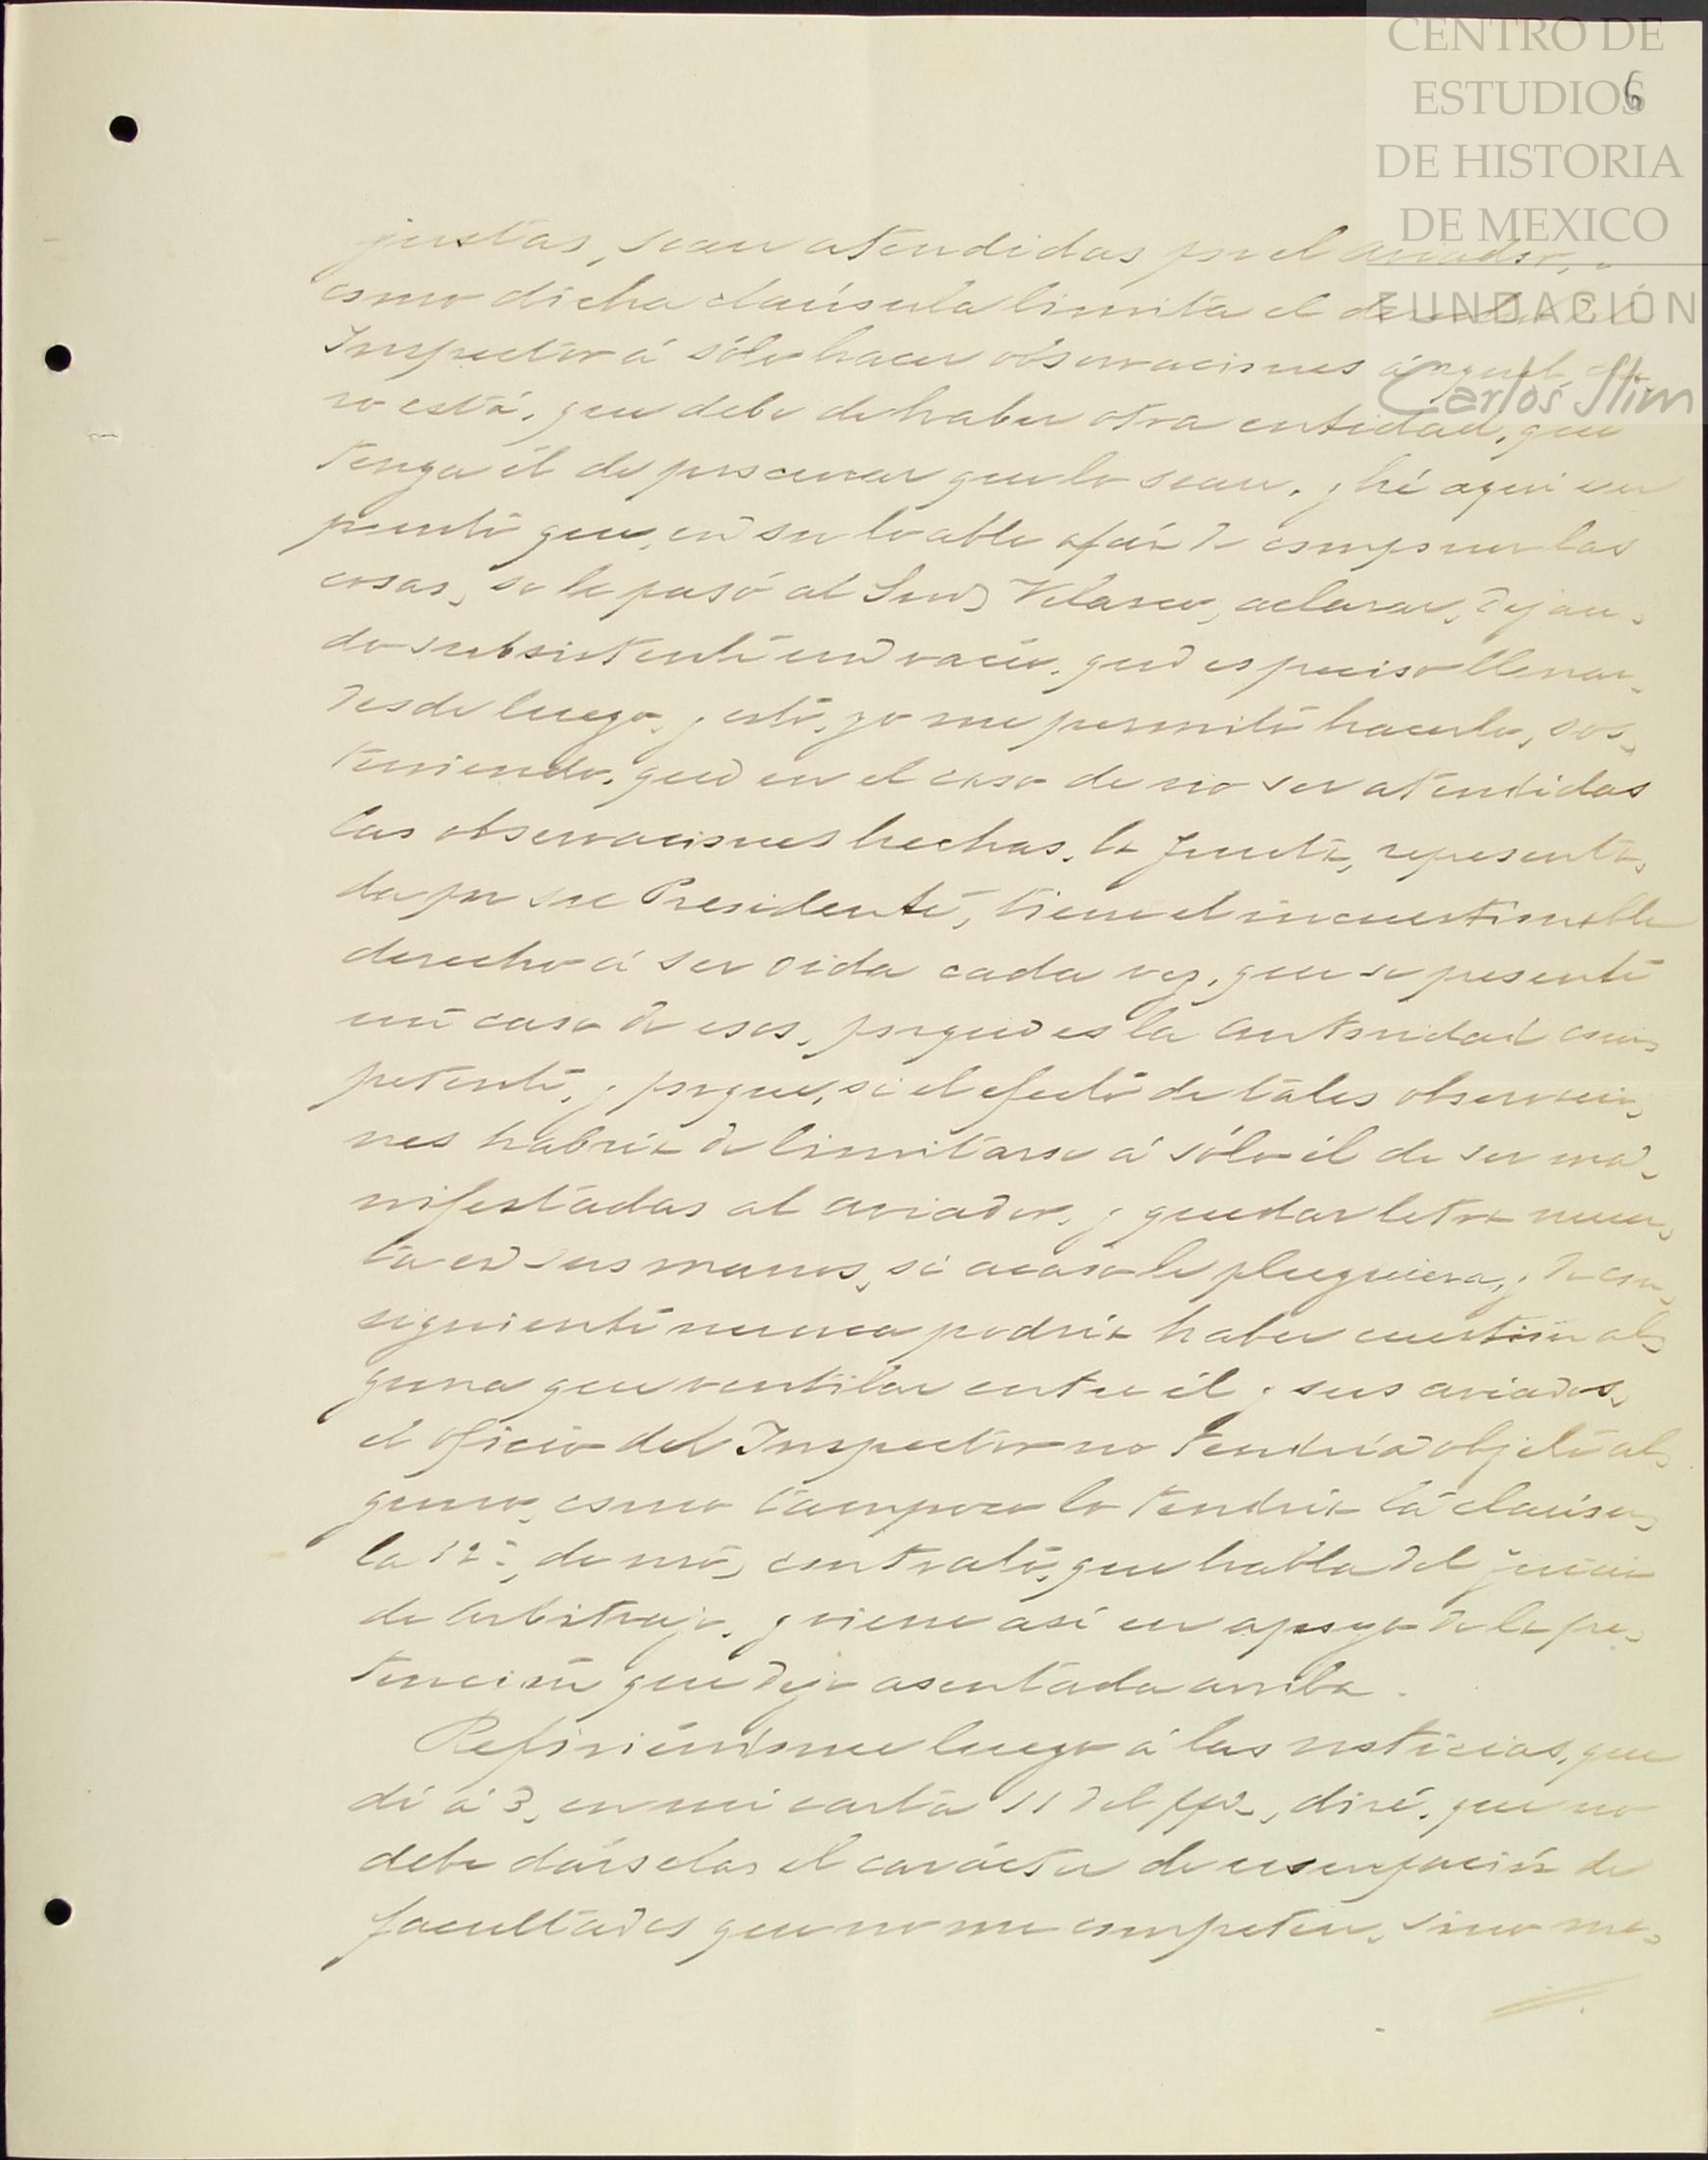 CENTRO DE
ESTUDIOS
DE HISTORIA
DE MEXICO
FUNDACIÓN
Carlos Slim
6
justas, sean atendidas por el aviador, y
como dicha claúsula limita el derecho del
Inspector á sólo hacer observaciones á aquel, cla-
ro está, que debe de haber otra entidad, que
tenga él de procurar que lo sean, y hé aqui un
punto que, en su loable afán de componer las
cosas, se le pasó al Velasco, aclarar, dejan-
do subsistente un vacio, que es preciso llenar
desde luego, y esto, yo me permito hacerlo, sos-
teniendo, que en el caso de no ser atendidas
las observaciones hechas, la Junta, representa-
da por su Presidente, tiene el incuestionable
derecho á ser oida cada vez, que se presente
un caso de esos, porque es la autoridad com-
petente, y porque, si el efecto de tales observacio-
nes habria de limitarse á sólo él de ser ma-
nifestadas al aviador, y quedar letra muer-
ta en sus manos, si acaso le pluguiera, y de con-
siguiente nunca podria haber cuestión al-
guna que ventilar entre él y sus aviados,
el oficio del Inspector no tendria objeto al-
guno, como tampoco lo tendria la claúsu-
la 12ª, de nro, contrato, que habla del juicio
de arbitraje, y viene asi en apoyo de la pre-
tención que dejo asentada arriba.
Refiriéndome luego á las noticias, que
di á en mi carta 11 del diré, que no
debe dárselas el carácter de usurpación de
facultades que no me competen, sino me-